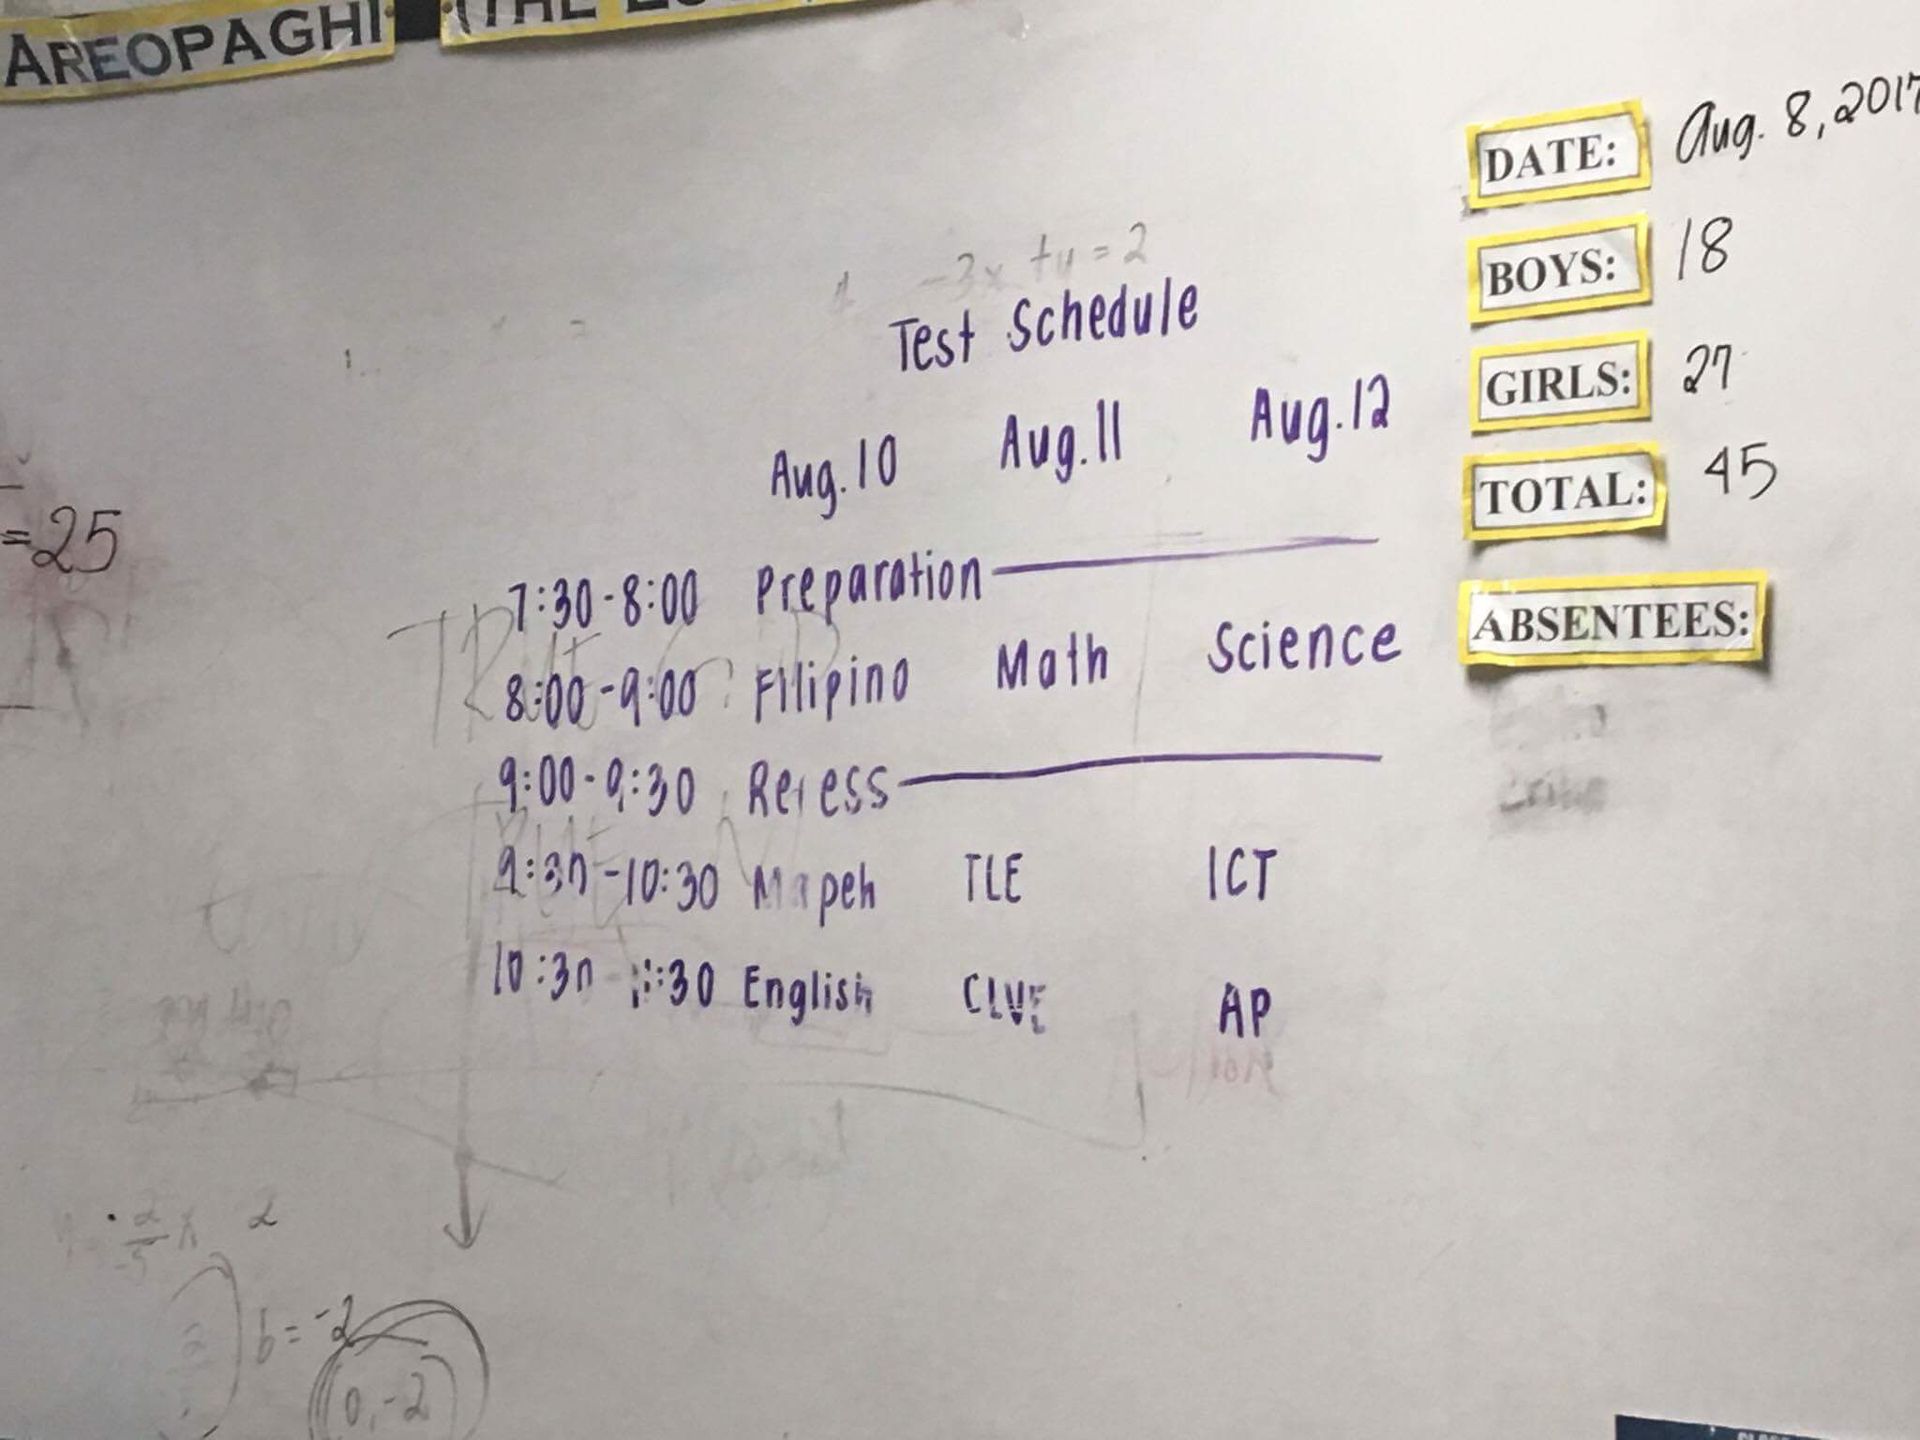 AREOPAGHI (THE
DATE: Aug. 8, 2017
BOYS: 18
GIRLS: 27
TOTAL: 45
ABSENTEES:
-3x + y = 2
Test Schedule
Aug. 10 Aug. 11 Aug. 12
7:30-8:00 Preparation
8:00-9:00 Filipino Math Science
9:00-9:30 Recess
9:30-10:30 Mapeh TLE ICT
10:30 11:30 English CLVE AP
=25
2
b=-2
0,-2